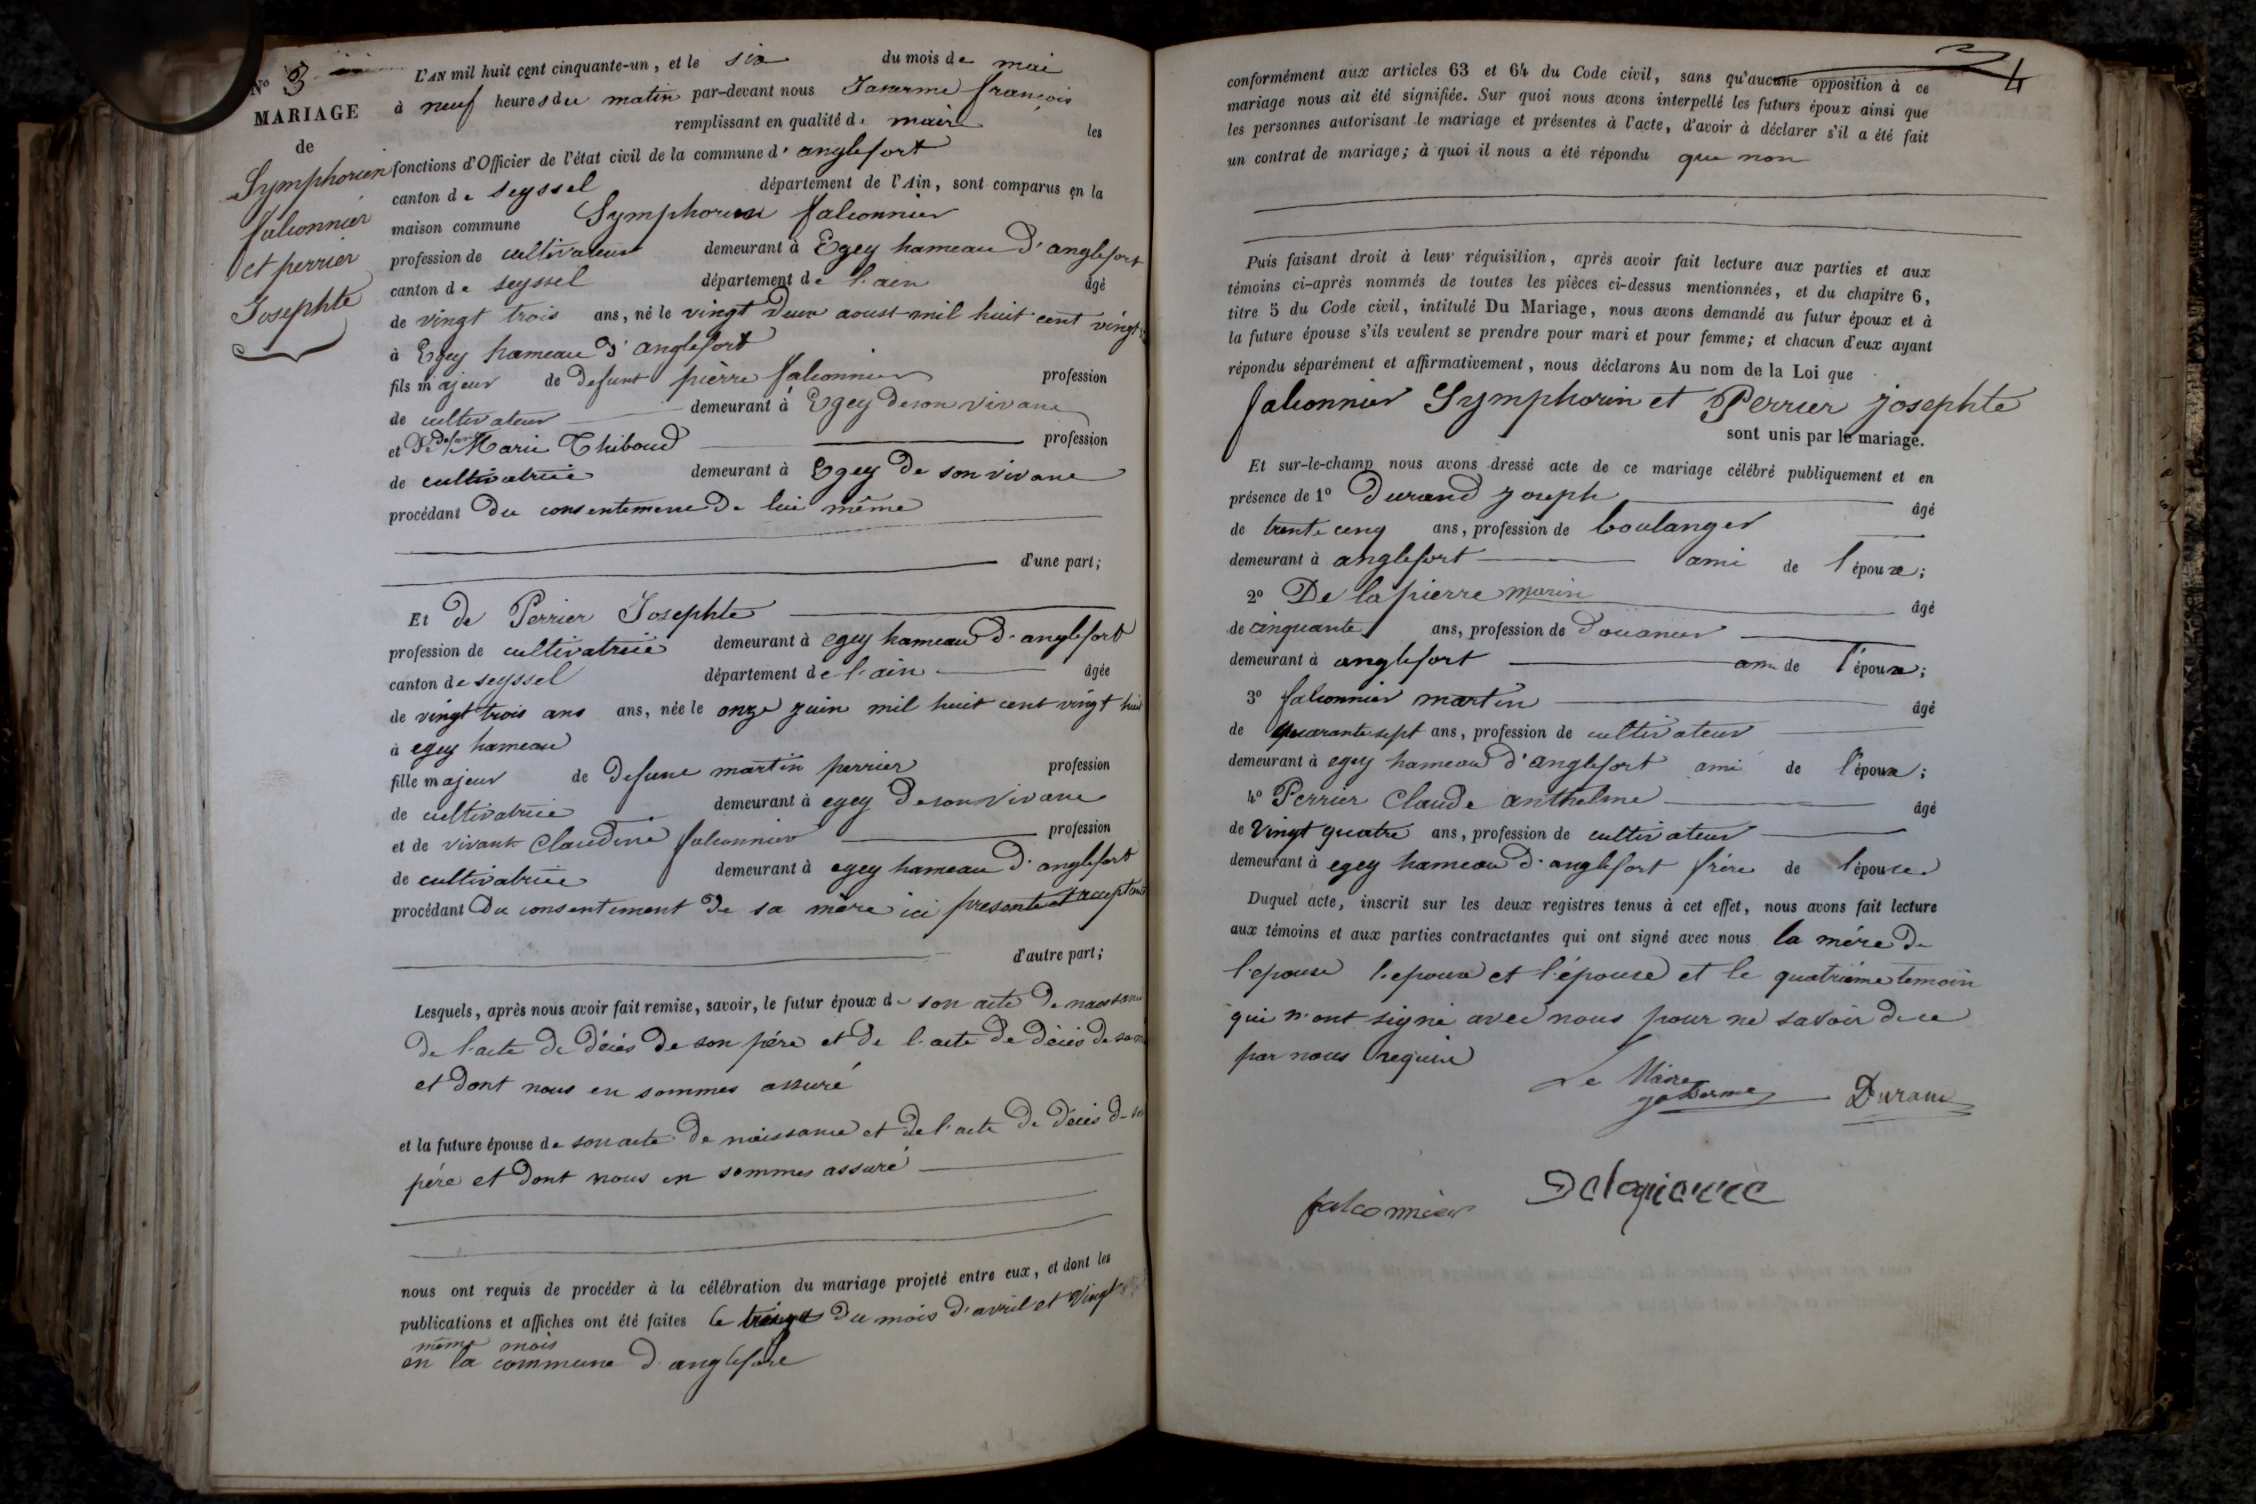 N° 3
MARIAGE
de
Symphorien
falconnier
et perrier
Josephte
L'AN mil huit cent cinquante-un, et le six du mois de mai
à neuf heures du matin par-devant nous françois
remplissant en qualité de maire les
fonctions d'Officier de l'état civil de la commune d'anglefort
canton de seyssel département de l'Ain, sont comparus en la
maison commune Symphorien falconnier
profession de cultivateur demeurant à Egey hameau d'anglefort
canton de seyssel département de l'ain âgé
de vingt trois ans, né le vingt deux aoust mil huit cent vingt
à Egey hameau d'anglefort
fils majeur de defunt pièrre falconnier profession
de cultivateur demeurant à Egey de son vivant
et de defunte Marie Thiboud profession
de cultivatrice demeurant à Egey de son vivant
procédant du consentement de lui même
d'une part;
Et de Perrier Josephte
profession de cultivatrice demeurant à egey hameau d'anglefort
canton de seyssel département de l'ain âgée
de vingt trois ans ans, née le onze juin mil huit cent vingt huit
à egey hameau
fille majeur de defunt martin perrier profession
de cultivatrice demeurant à egey de son vivant
et de vivante Claudine falconnier profession
de cultivatrice demeurant à egey hameau d'anglefort
procédant du consentement de sa mère ici presente et acceptant
d'autre part;
Lesquels, après nous avoir fait remise, savoir, le futur époux de son acte de naissance
de l'acte de décès de son père et de l'acte de décès de sa
et dont nous en sommes assuré
et la future épouse de son acte de naissance et de l'acte de décès de
père et dont nous en sommes assuré
nous ont requis de procéder à la célébration du mariage projeté entre eux, et dont les
publications et affiches ont été faites le treize du mois d'avril et vingt
même mois
en la commune d'anglefort
4
conformément aux articles 63 et 64 du Code civil, sans qu'aucune opposition à ce
mariage nous ait été signifiée. Sur quoi nous avons interpellé les futurs époux ainsi que
les personnes autorisant le mariage et présentes à l'acte, d'avoir à déclarer s'il a été fait
un contrat de mariage; à quoi il nous a été répondu que non
Puis faisant droit à leur réquisition, après avoir fait lecture aux parties et aux
témoins ci-après nommés de toutes les pièces ci-dessus mentionnées, et du chapitre 6,
titre 5 du Code civil, intitulé Du Mariage, nous avons demandé au futur époux et à
la future épouse s'ils veulent se prendre pour mari et pour femme; et chacun d'eux ayant
répondu séparément et affirmativement, nous déclarons Au nom de la Loi que
falconnier Symphorin et Perrier josephte
sont unis par le mariage.
Et sur-le-champ nous avons dressé acte de ce mariage célébré publiquement et en
présence de 1° Durand joseph âgé
de trente cinq ans, profession de boulanger
demeurant à anglefort ami de l'époux;
2° De lapierre marin âgé
de cinquante ans, profession de douanier
demeurant à anglefort ami de l'époux;
3° falconnier martin âgé
de quarante sept ans, profession de cultivateur
demeurant à egey hameau d'anglefort ami de l'époux;
4° Perrier Claude anthelme âgé
de vingt quatre ans, profession de cultivateur
demeurant à egey hameau d'anglefort frère de l'épouse
Duquel acte, inscrit sur les deux registres tenus à cet effet, nous avons fait lecture
aux témoins et aux parties contractantes qui ont signé avec nous la mère de
l'epouse l'epoux et l'épouse et le quatrième temoin
qui n'ont signé avec nous pour ne savoir de ce
par nous requis
Le Maire
Durand
Delapierre
falconnier